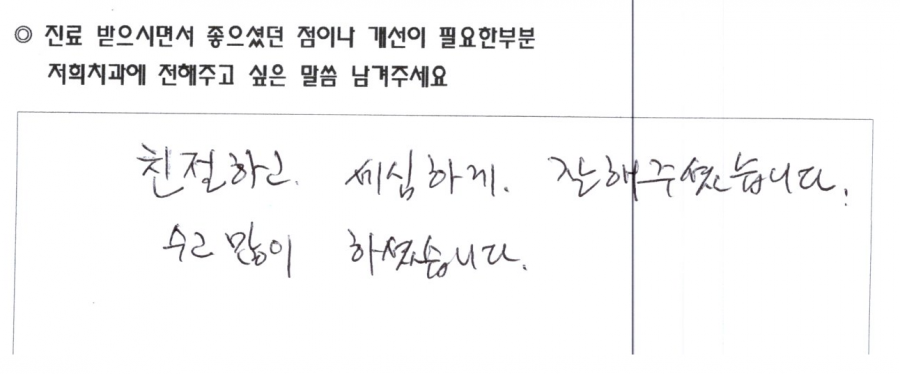 ◎ 진료 받으시면서 좋으셨던 점이나 개선이 필요한부분
저희치과에 전해주고 싶은 말씀 남겨주세요
친절하고. 세심하게. 잘해주셨습니다.
수고 많이 하셨습니다.